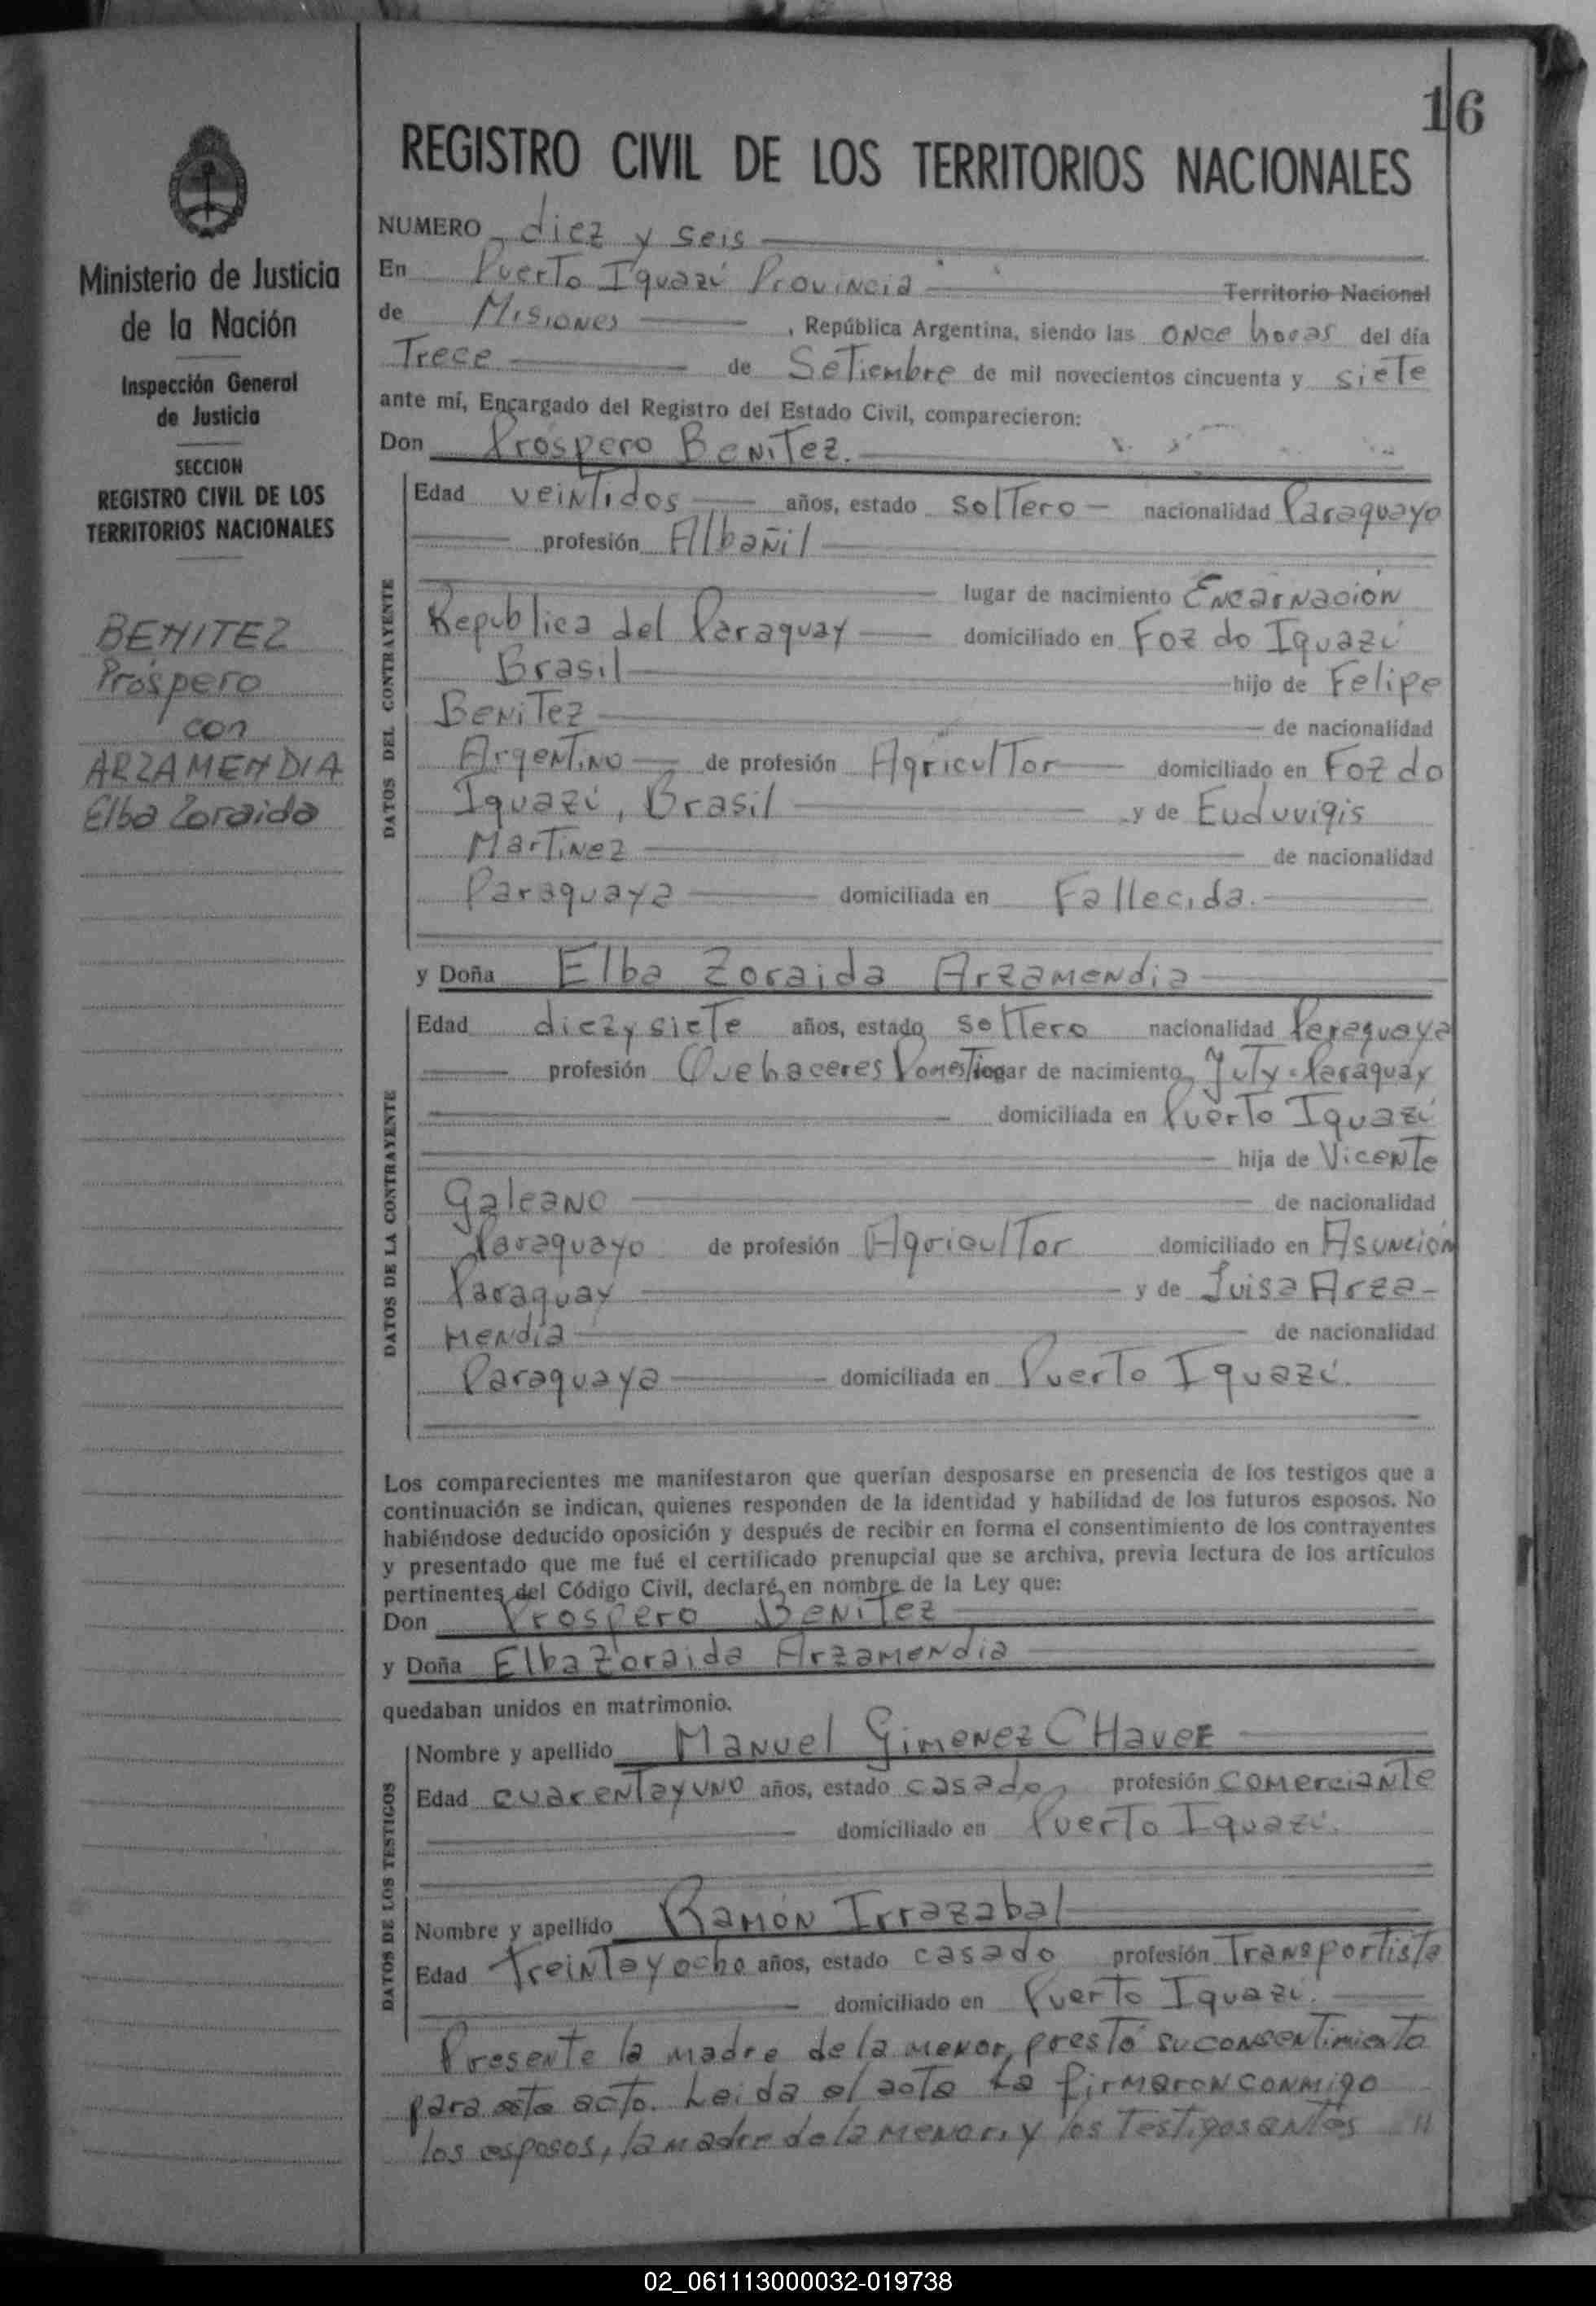 16
REGISTRO CIVIL DE LOS TERRITORIOS NACIONALES
Ministerio de Justicia
de la Nación
Inspección General
de Justicia
SECCION
REGISTRO CIVIL DE LOS
TERRITORIOS NACIONALES
BENITEZ
Próspero
con
ARZAMENDIA
Elba Zoraida
NUMERO diez y seis
En Puerto Iguazú Provincia Territorio Nacional
de Misiones , República Argentina, siendo las once horas del día
Trece de Setiembre de mil novecientos cincuenta y siete
ante mí, Encargado del Registro del Estado Civil, comparecieron:
Don Próspero Benitez.
DATOS DEL CONTRAYENTE
Edad veintidos años, estado soltero - nacionalidad Paraguayo
profesión Albañil
lugar de nacimiento Encarnación
Republica del Paraguay domiciliado en Foz do Iguazú
Brasil hijo de Felipe
Benitez de nacionalidad
Argentino de profesión Agricultor domiciliado en Foz do
Iguazú, Brasil y de Euduvigis
Martinez de nacionalidad
Paraguaya domiciliada en Fallecida.
y Doña Elba Zoraida Arzamendia
DATOS DE LA CONTRAYENTE
Edad diez y siete años, estado soltero nacionalidad Paraguaya
profesión Quehaceres Domest lugar de nacimiento Yuty-Paraguay
domiciliada en Puerto Iguazú
hija de Vicente
Galeano de nacionalidad
Paraguayo de profesión Agricultor domiciliado en Asunción
Paraguay y de Luisa Arza-
mendia de nacionalidad
Paraguaya domiciliada en Puerto Iguazú.
Los comparecientes me manifestaron que querían desposarse en presencia de los testigos que a
continuación se indican, quienes responden de la identidad y habilidad de los futuros esposos. No
habiéndose deducido oposición y después de recibir en forma el consentimiento de los contrayentes
y presentado que me fué el certificado prenupcial que se archiva, previa lectura de los artículos
pertinentes del Código Civil, declaré en nombre de la Ley que:
Don Prospero Benitez
y Doña Elba Zoraida Arzamendia
quedaban unidos en matrimonio.
DATOS DE LOS TESTIGOS
Nombre y apellido Manuel Gimenez CHavez
Edad cuarenta y uno años, estado casado, profesión comerciante
domiciliado en Puerto Iguazú.
Nombre y apellido Ramón Irrazabal
Edad Treinta y ocho años, estado casado profesión Transportista
domiciliado en Puerto Iguazú.
Presente la madre de la menor, prestó su consentimiento
para este acto. Leida el acta la firmaron conmigo
los esposos, la madre de la menor, y los Testigos antes "
02_061113000032-019738